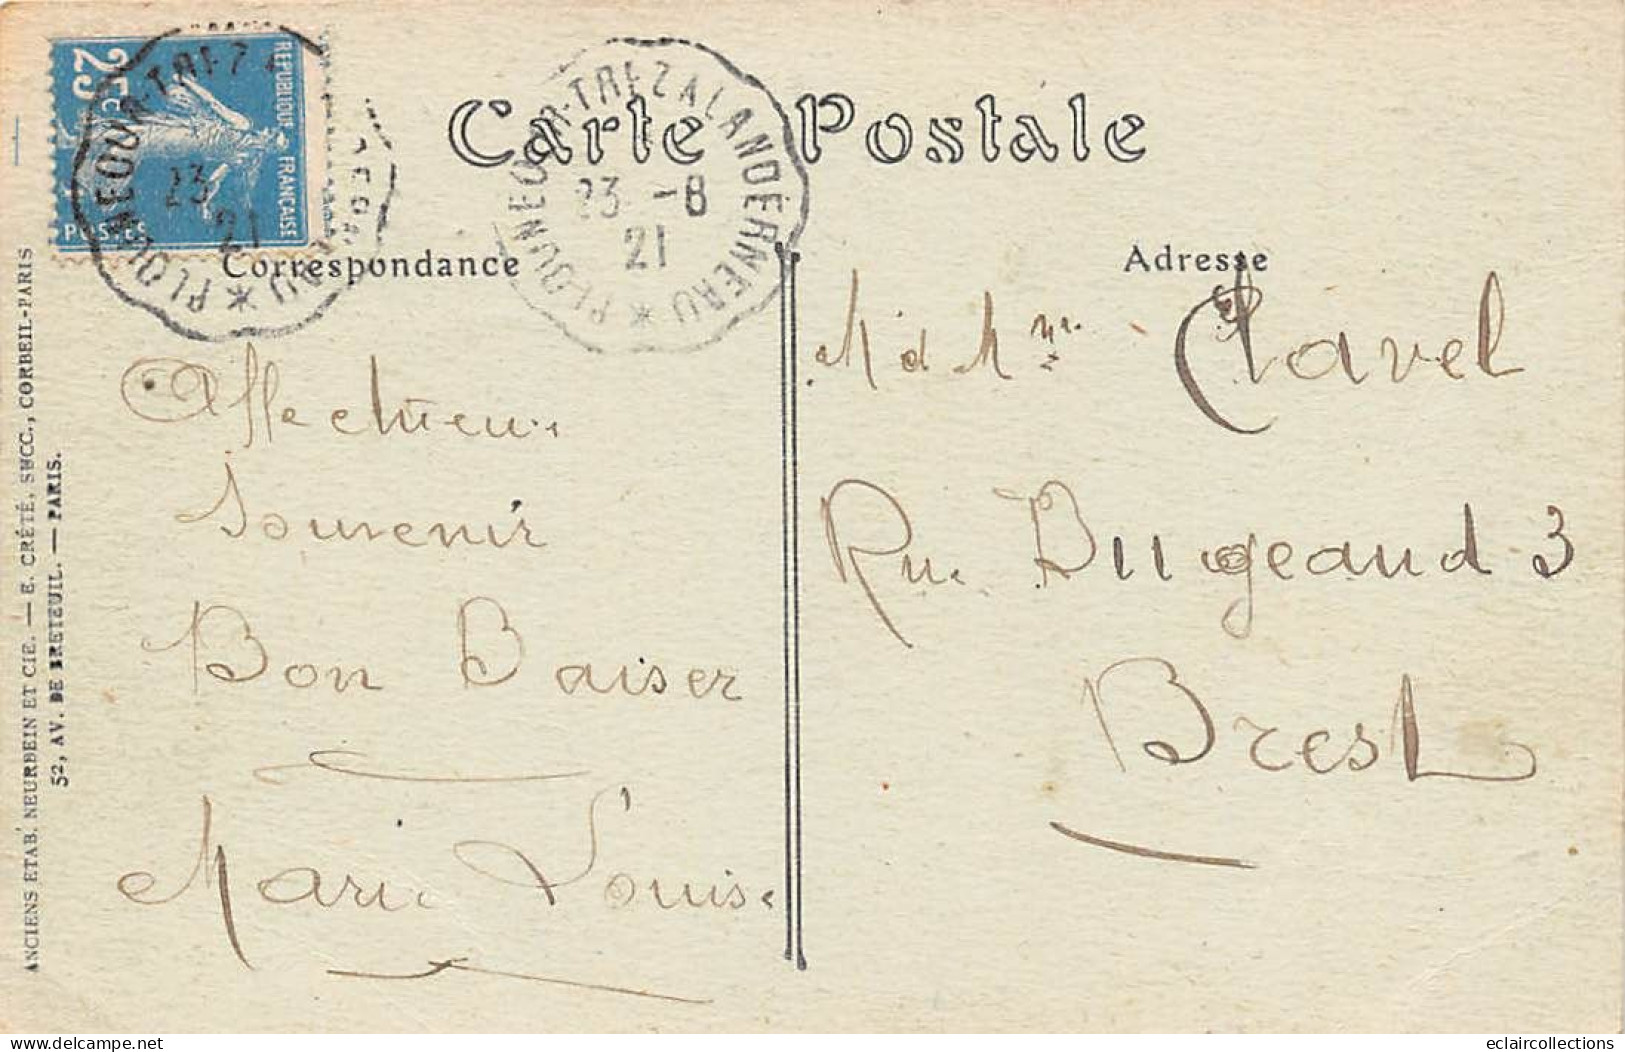 25c
REPUBLIQUE FRANÇAISE
POSTES
PLOUNEOUR-TREZ A LANDERNEAU *
23 -8
21
PLOUNEOUR-TREZ A LANDERNEAU *
23
21
Carte Postale
Correspondance
Adresse
Affectueux
Souvenir
Bon Baiser
Marie Louise
Mr d Mme Clavel
Rue Bugeaud 3
Brest
ANCIENS ETAB. NEURDEIN ET CIE. — E. CRÉTÉ, SUCC., CORBEIL-PARIS
52, AV. DE BRETEUIL. — PARIS.
eclaircollections